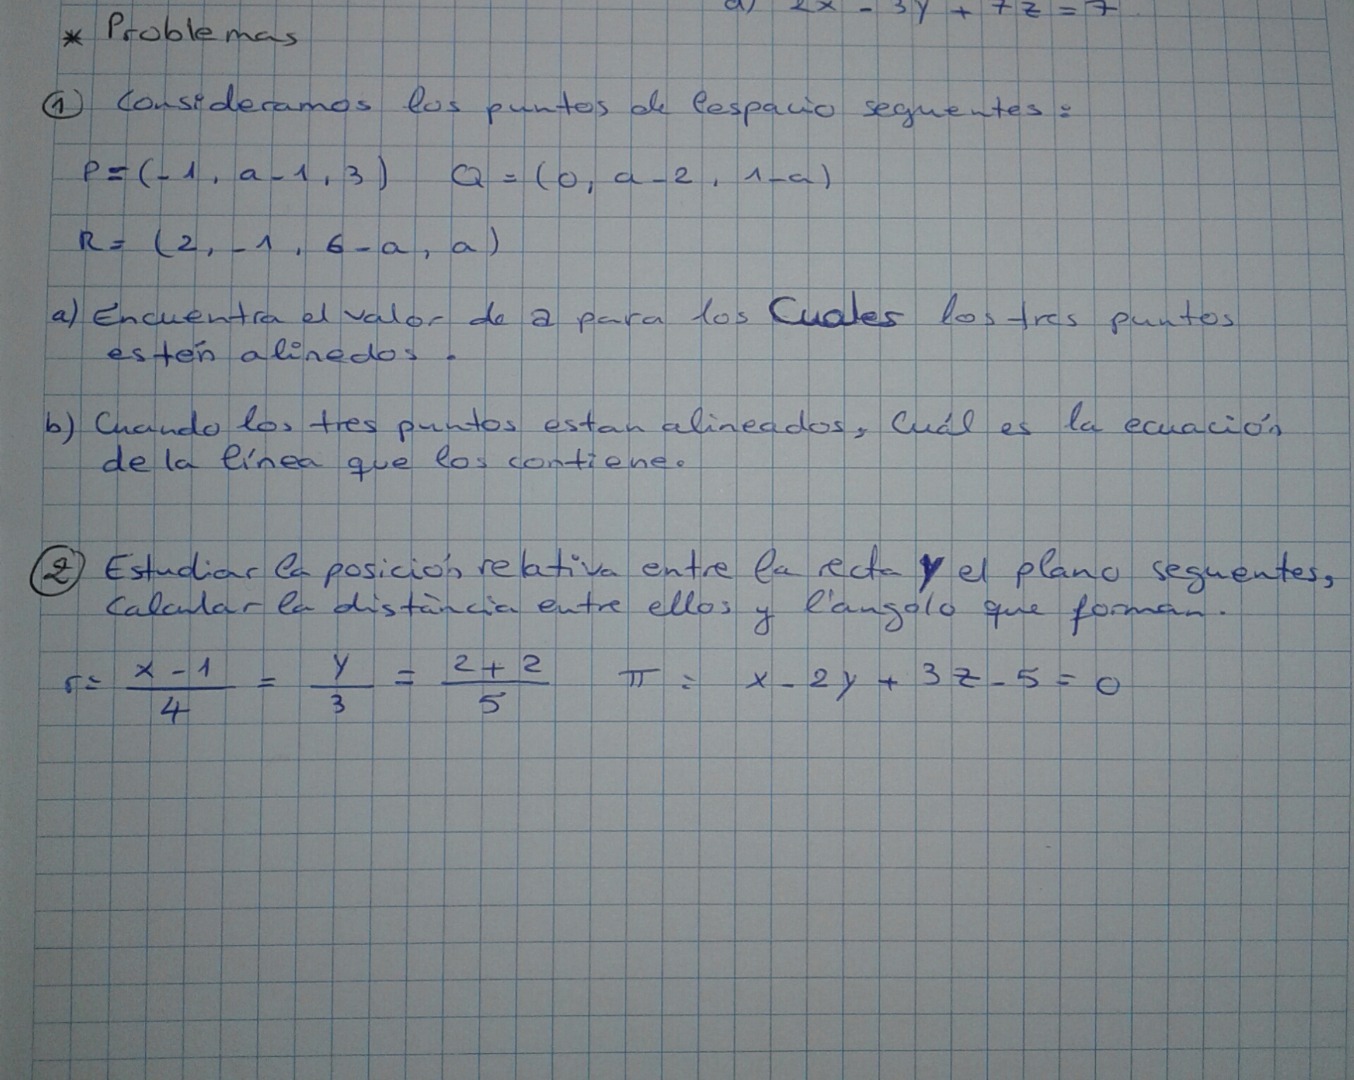 d) 2x - 3y + 7z = 7
* Problemas
① Consideramos los puntos de l'espacio seguentes:
P=(-1, a-1, 3) Q=(0, a-2, 1-a)
R= (2, -1, 6-a, a)
a) Encuentra el valor de a para los Cuales los tres puntos
estén alinedos.
b) Cuando los tres puntos estan alineados, Cuál es la ecuación
de la línea que los contiene.
② Estudiar la posición relativa entre la recta y el plano seguentes,
Calcular la distáncia entre ellos y l'angolo que forman.
r= x-1/4 = y/3 = z+2/5 π = x-2y+3z-5=0